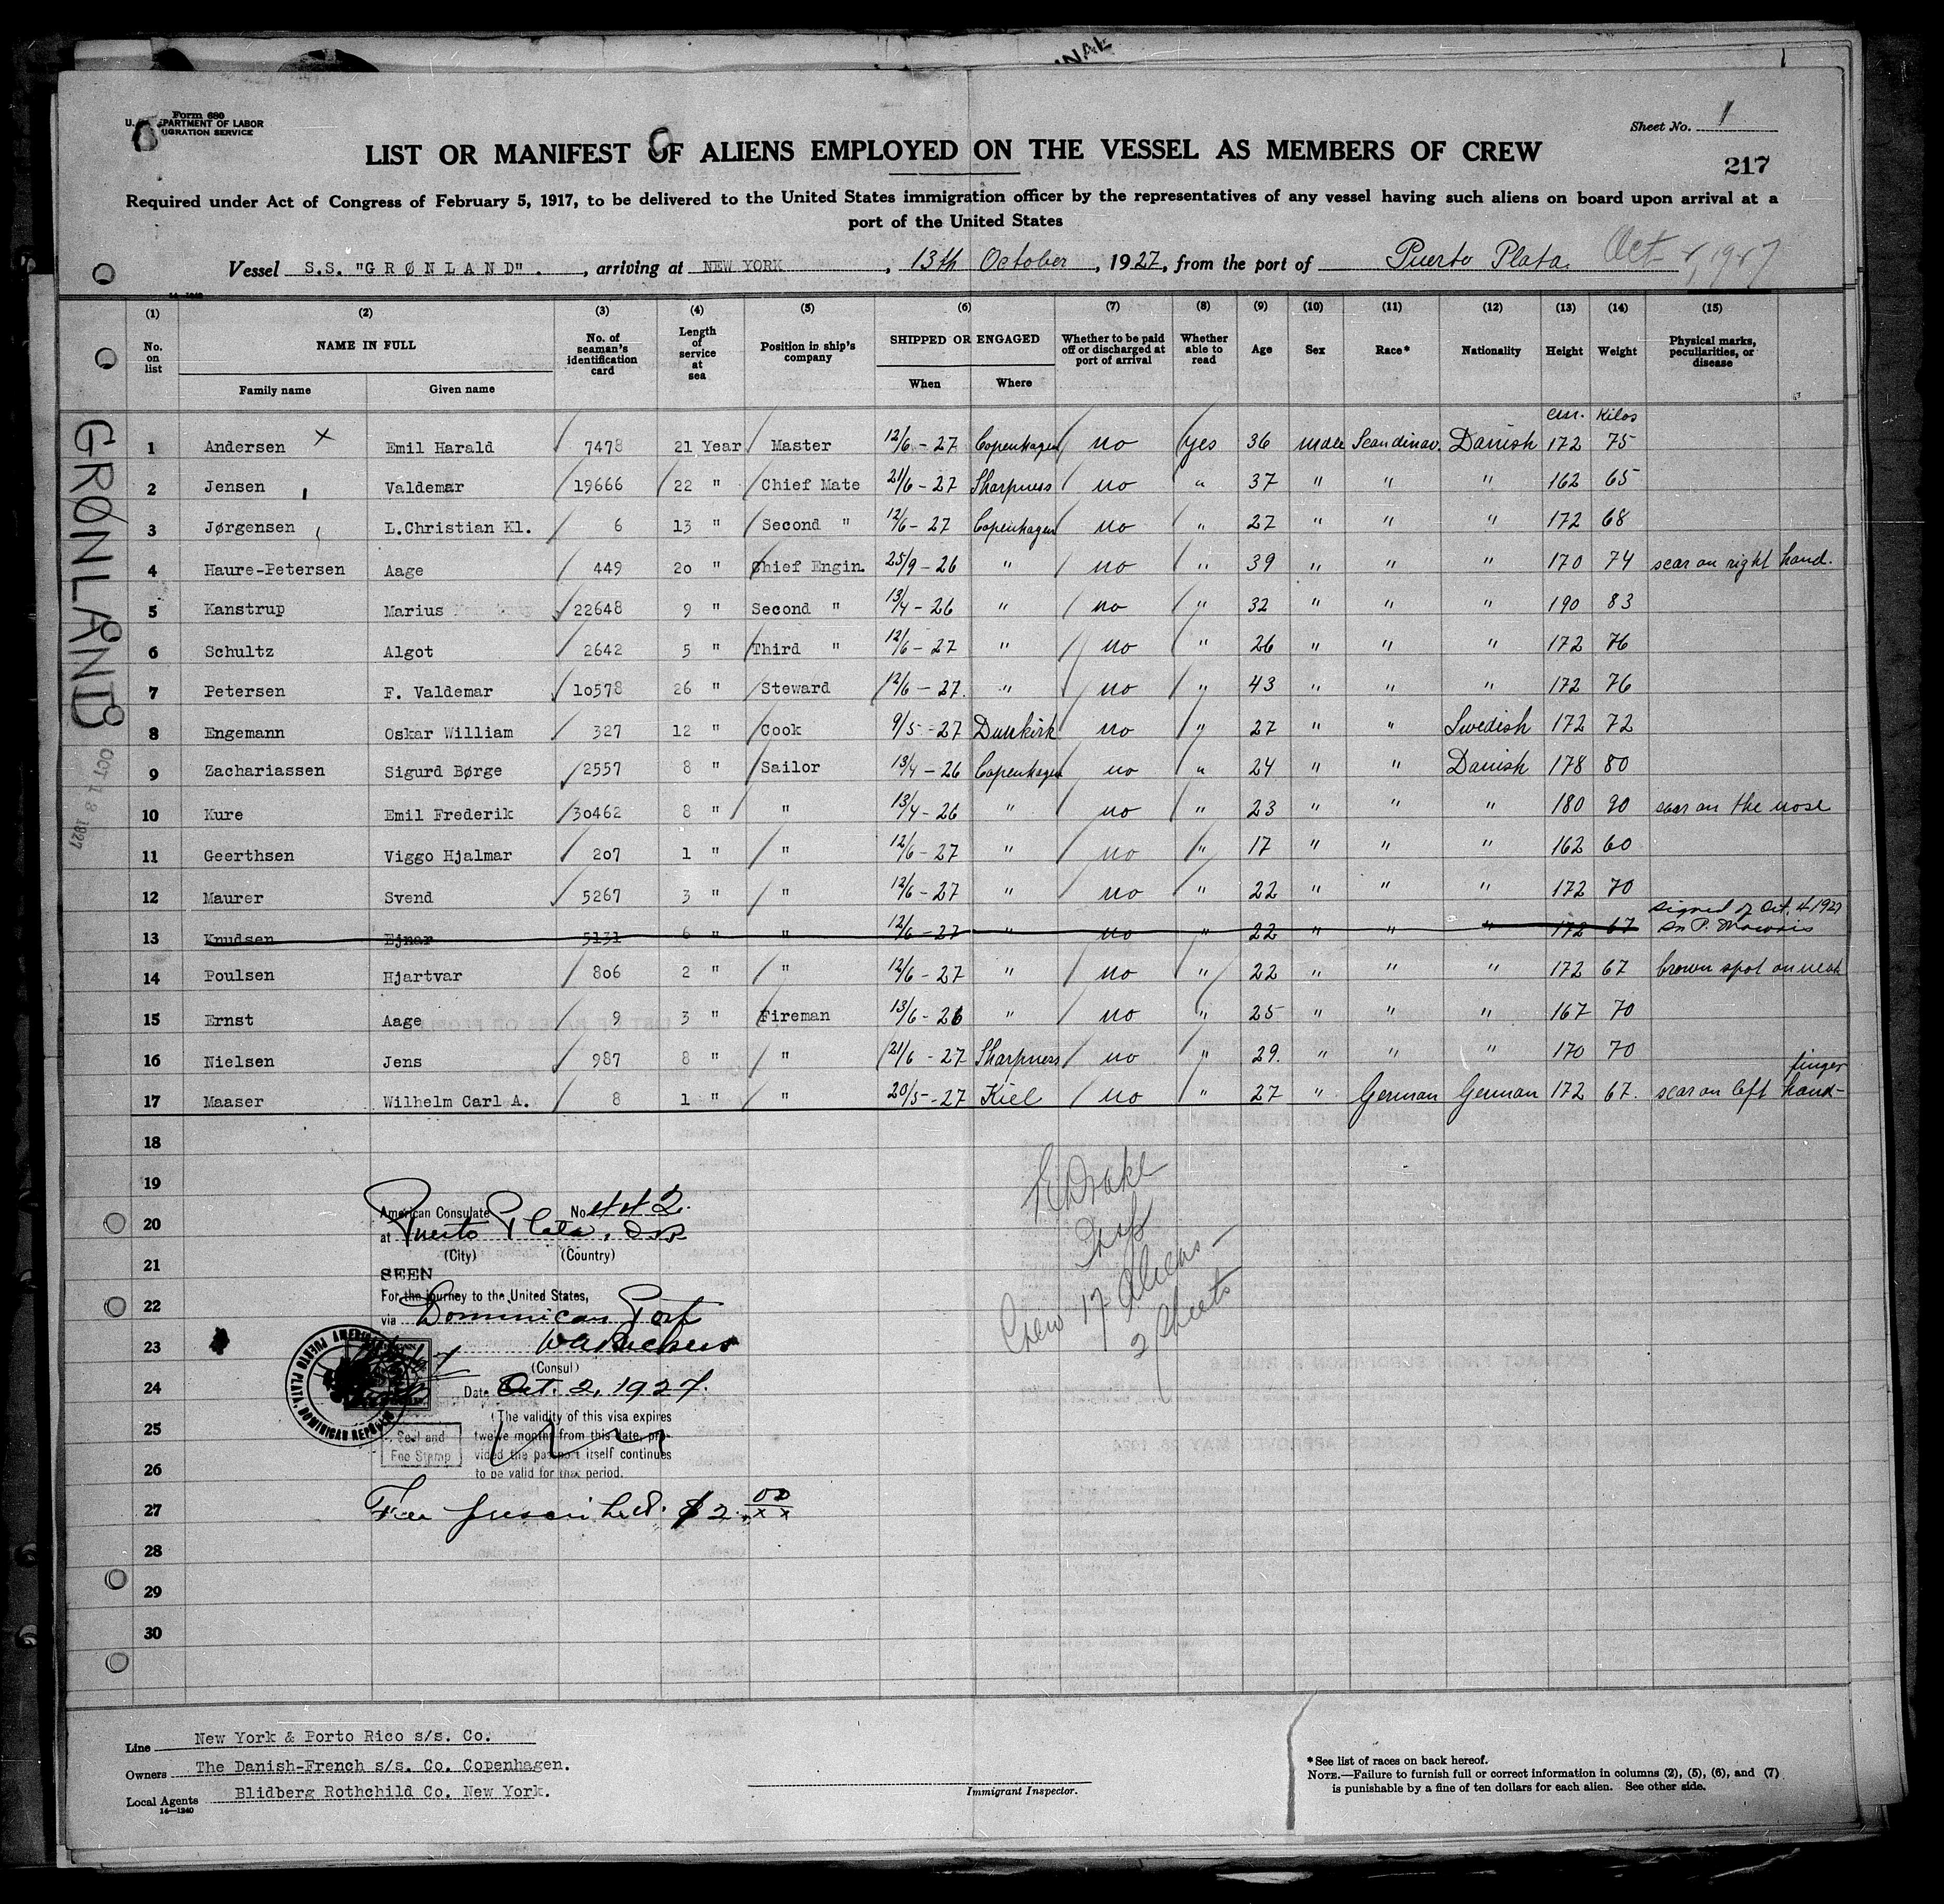 Form 680
U. S. DEPARTMENT OF LABOR
IMMIGRATION SERVICE
Sheet No. 1
LIST OR MANIFEST OF ALIENS EMPLOYED ON THE VESSEL AS MEMBERS OF CREW
217
Required under Act of Congress of February 5, 1917, to be delivered to the United States immigration officer by the representatives of any vessel having such aliens on board upon arrival at a
port of the United States
Vessel S.S. "GRØNLAND". , arriving at NEW YORK , 13th October , 1927, from the port of Puerto Plata. Oct
(1) (2) (3) (4) (5) (6) (7) (8) (9) (10) (11) (12) (13) (14) (15)
No. on list NAME IN FULL Family name Given name No. of seaman's identification card Length of service at sea Position in ship's company SHIPPED OR ENGAGED When Where Whether to be paid off or discharged at port of arrival Whether able to read Age Sex Race* Nationality Height Weight Physical marks, peculiarities, or disease
cm. Kilos
1 Andersen X Emil Harald 7478 21 Year Master 12/6-27 Copenhagen no yes 36 male Scandinav. Danish 172 75
2 Jensen Valdemar 19666 22 " Chief Mate 21/6-27 Sharpness no " 37 " " " 162 65
3 Jørgensen L.Christian Kl. 6 13 " Second " 12/6-27 Copenhagen no " 27 " " " 172 68
4 Haure-Petersen Aage 449 20 " Chief Engin. 25/9-26 " no " 39 " " " 170 74 scar on right hand.
5 Kanstrup Marius 22648 9 " Second " 13/4-26 " no " 32 " " " 190 83
6 Schultz Algot 2642 5 " Third " 12/6-27 " no " 26 " " " 172 76
7 Petersen F. Valdemar 10578 26 " Steward 12/6-27. " no " 43 " " " 172 76
8 Engemann Oskar William 327 12 " Cook 9/5-27 Dunkirk no " 27 " " Swedish 172 72
9 Zachariassen Sigurd Børge 2557 8 " Sailor 13/4-26 Copenhagen no " 24 " " Danish 178 80
10 Kure Emil Frederik 30462 8 " " 13/4-26 " no " 23 " " " 180 90 scar on the nose
11 Geerthsen Viggo Hjalmar 207 1 " " 12/6-27 " no " 17 " " " 162 60
12 Maurer Svend 5267 3 " " 12/6-27 " no " 22 " " " 172 70
signed of Oct. 4 1927
13 Knudsen Ejnar 5131 6 " " 12/6-27 " no " 22 " " " 172 67 Sn P. Macoris
14 Poulsen Hjartvar 806 2 " " 12/6-27 " no " 22 " " " 172 67 brown spot on neck
15 Ernst Aage 9 3 " Fireman 13/6-26 " no " 25 " " " 167 70
16 Nielsen Jens 987 8 " " 21/6-27 Sharpness no " 29. " " " 170 70
finger
17 Maaser Wilhelm Carl A. 8 1 " " 20/5-27 Kiel no " 27 " German German 172 67. scar on left hand-
18
19
20
21
22
23
24
25
26
27
28
29
30
GRØNLAND
OCT 13 1927
American Consulate No 442.
at Puerto Plata, D.R.
(City) (Country)
SEEN
For the journey to the United States,
via Dominican Port
(Consul)
Date Oct. 2, 1927.
(The validity of this visa expires
twelve months from this date, pro-
vided the passport itself continues
to be valid for that period.
Seal and
Fee Stamp
PUERTO PLATA, DOMINICAN REPUBLIC
Fee prescribed. $2.00/xx
Drake
Insp
Crew 17 Aliens -
2 Sheets
Line New York & Porto Rico s/s. Co.
Owners The Danish-French s/s. Co. Copenhagen.
Local Agents Blidberg Rothchild Co. New York.
14—1240
Immigrant Inspector.
*See list of races on back hereof.
NOTE.—Failure to furnish full or correct information in columns (2), (5), (6), and (7)
is punishable by a fine of ten dollars for each alien. See other side.